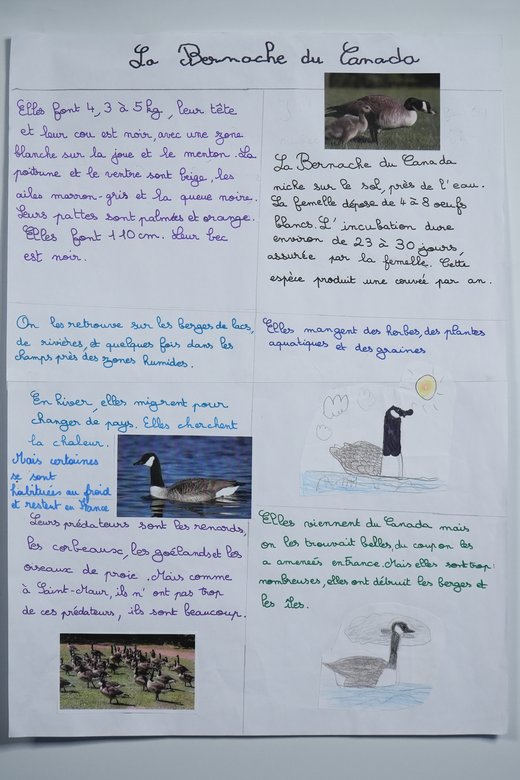 La Bernache du Canada
Elles font 4,3 à 5kg, leur tête
et leur cou est noir, avec une zone
blanche sur la joue et le menton. La
poitrine et le ventre sont beige, les
ailes marron-gris et la queue noire.
Leurs pattes sont palmées et orange.
Elles font 110 cm. Leur bec
est noir.
La Bernache du Canada
niche sur le sol, près de l'eau.
La femelle dépose de 4 à 8 oeufs
blancs. L'incubation dure
environ de 23 à 30 jours,
assurée par la femelle. Cette
espèce produit une couvée par an.
On les retrouve sur les berges de lacs,
de rivières, et quelques fois dans les
champs près des zones humides.
Elles mangent des herbes, des plantes
aquatiques et des graines
En hiver, elles migrent pour
changer de pays. Elles cherchent
la chaleur.
Mais certaines
se sont
habituées au froid
et restent en France
Leurs prédateurs sont les renards,
les corbeaux, les goélands et les
oiseaux de proie. Mais comme
à Saint-Maur, ils n'ont pas trop
de ces prédateurs, ils sont beaucoup.
Elles viennent du Canada mais
on les trouvait belles, du coup on les
a amenées en France. Mais elles sont trop
nombreuses, elles ont détruit les berges et
les îles.